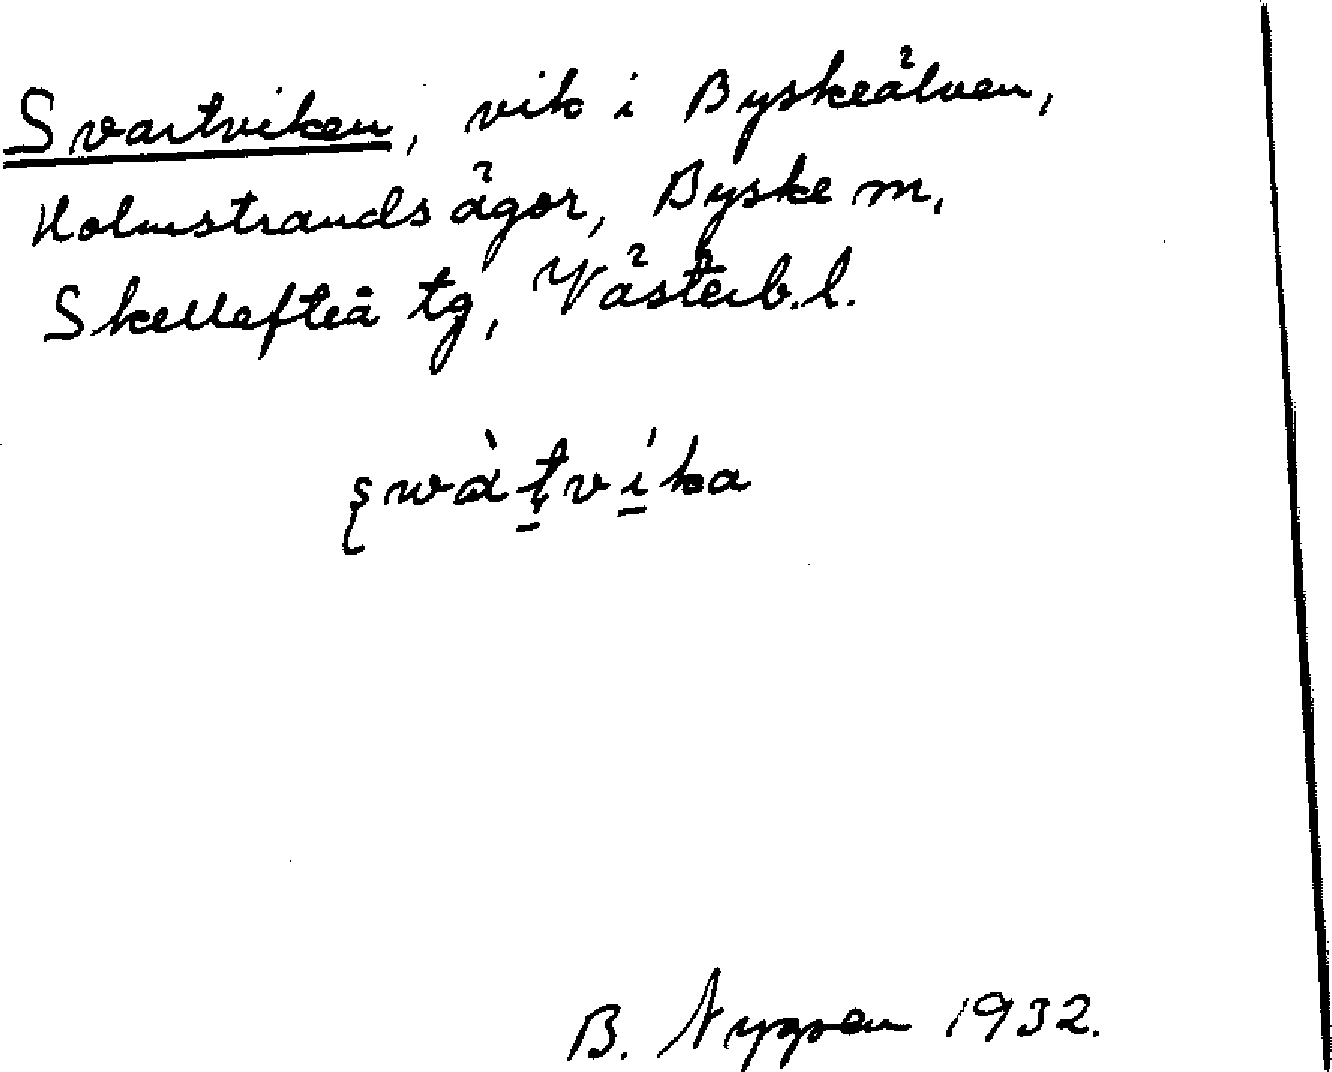 Svartviken, vik i Byskeälven,
Holmstrands ägor, Byske m,
Skellefteå tg, Västerb. l.
B. Nygren 1932.